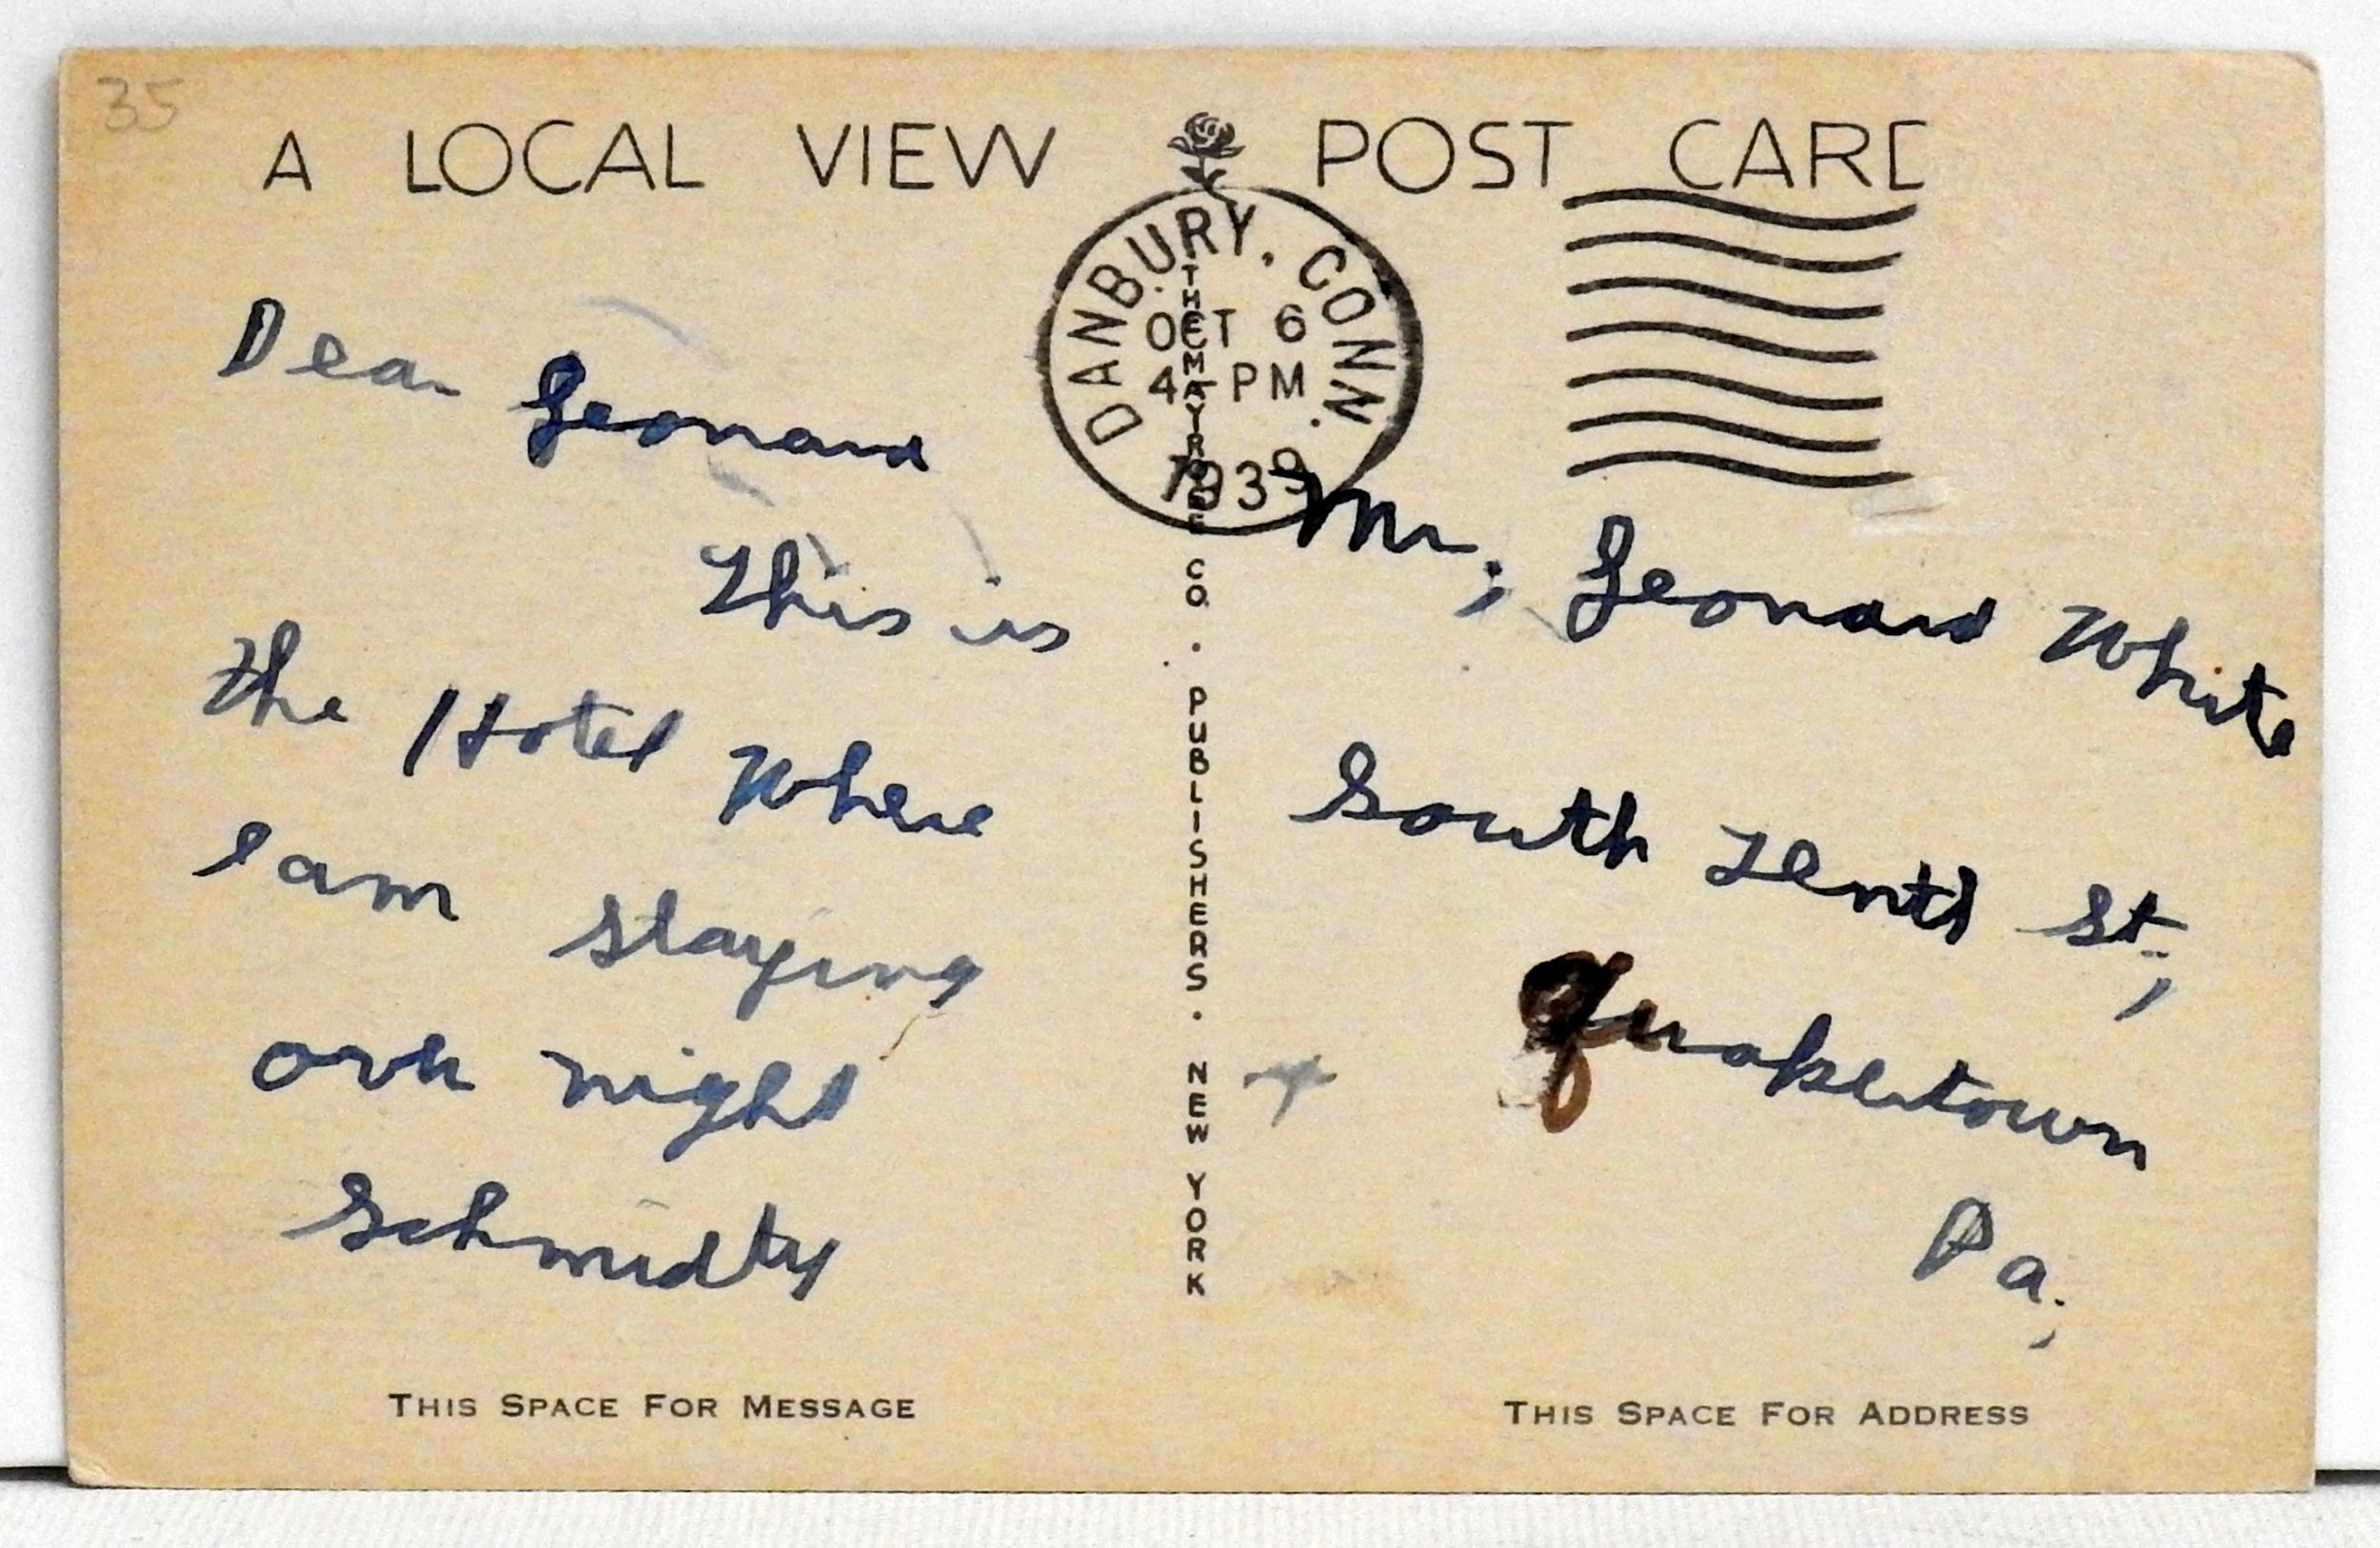 35
A LOCAL VIEW POST CARD
DANBURY, CONN.
OCT 6
4 PM
1939
THE MAYROSE CO. PUBLISHERS. NEW YORK
Dear Leonard
This is
the Hotel Where
I am staying
over night
Schmidty
Mr, Leonard White
South Tenth St,
Quakertown
Pa,
THIS SPACE FOR MESSAGE
THIS SPACE FOR ADDRESS